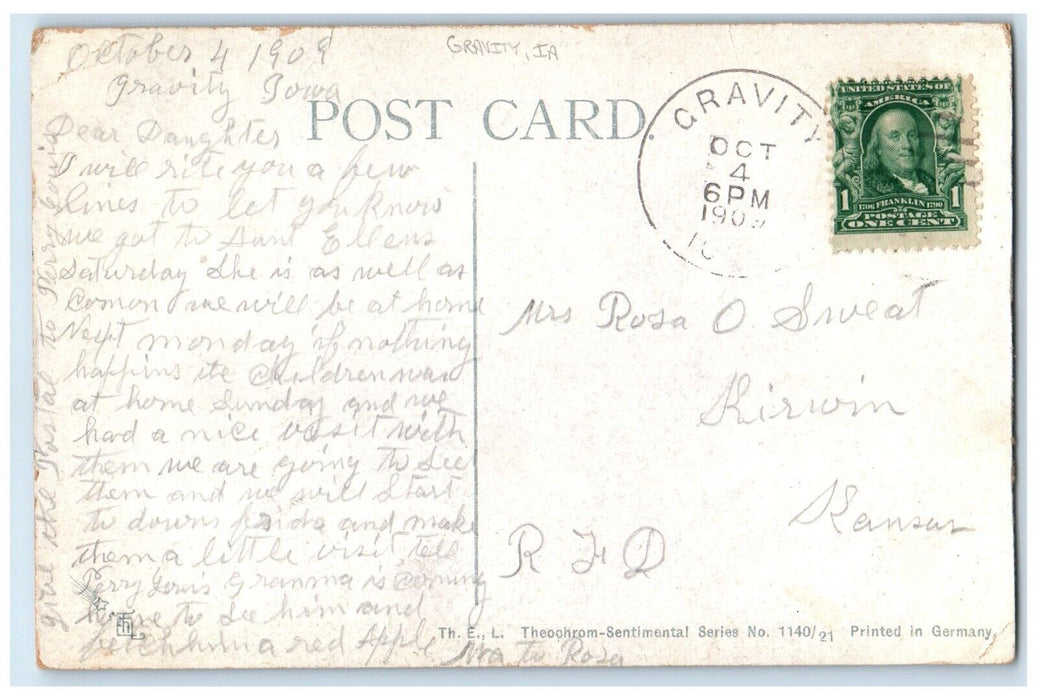 October 4 1909
Gravity Iowa
GRAVITY, IA
POST CARD
Dear Daughter
I will rite you a few
lines to let you know
we got to Aunt Ellens
Saturday She is as well as
Comon we will be at home
Next monday if nothing
happins the Children was
at home Sunday and we
had a nice visit with
them we are going to See
them and we will Start
to downs friday and make
them a little visit tell
Perry Louis Granma is Coming
home to See him and
fetch him a red Apple Ma to Rosa
give the Postal to Perry Louis
GRAVITY
OCT
4
6PM
1909
UNITED STATES OF
AMERICA
1 1706 FRANKLIN 1790 1
POSTAGE
ONE CENT
Mrs Rosa O Sweat
Kirwin
Kansas
R F D
Th. E., L. Theochrom-Sentimental Series No. 1140/21 Printed in Germany